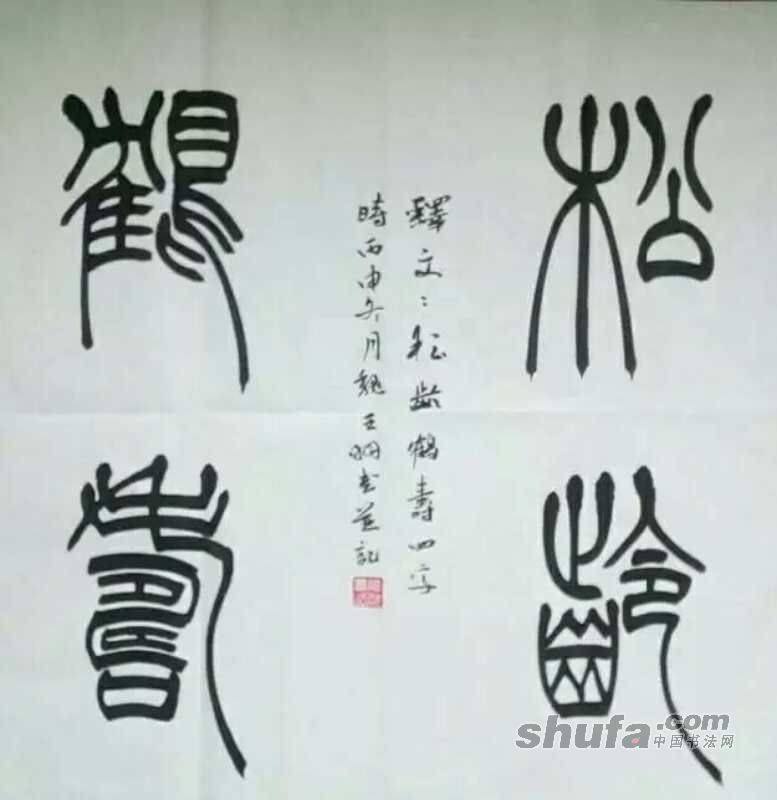 松齡
釋文：松齡鶴壽四字
時丙申冬月魏王
書並記
鶴壽
shufa.com
中国书法网